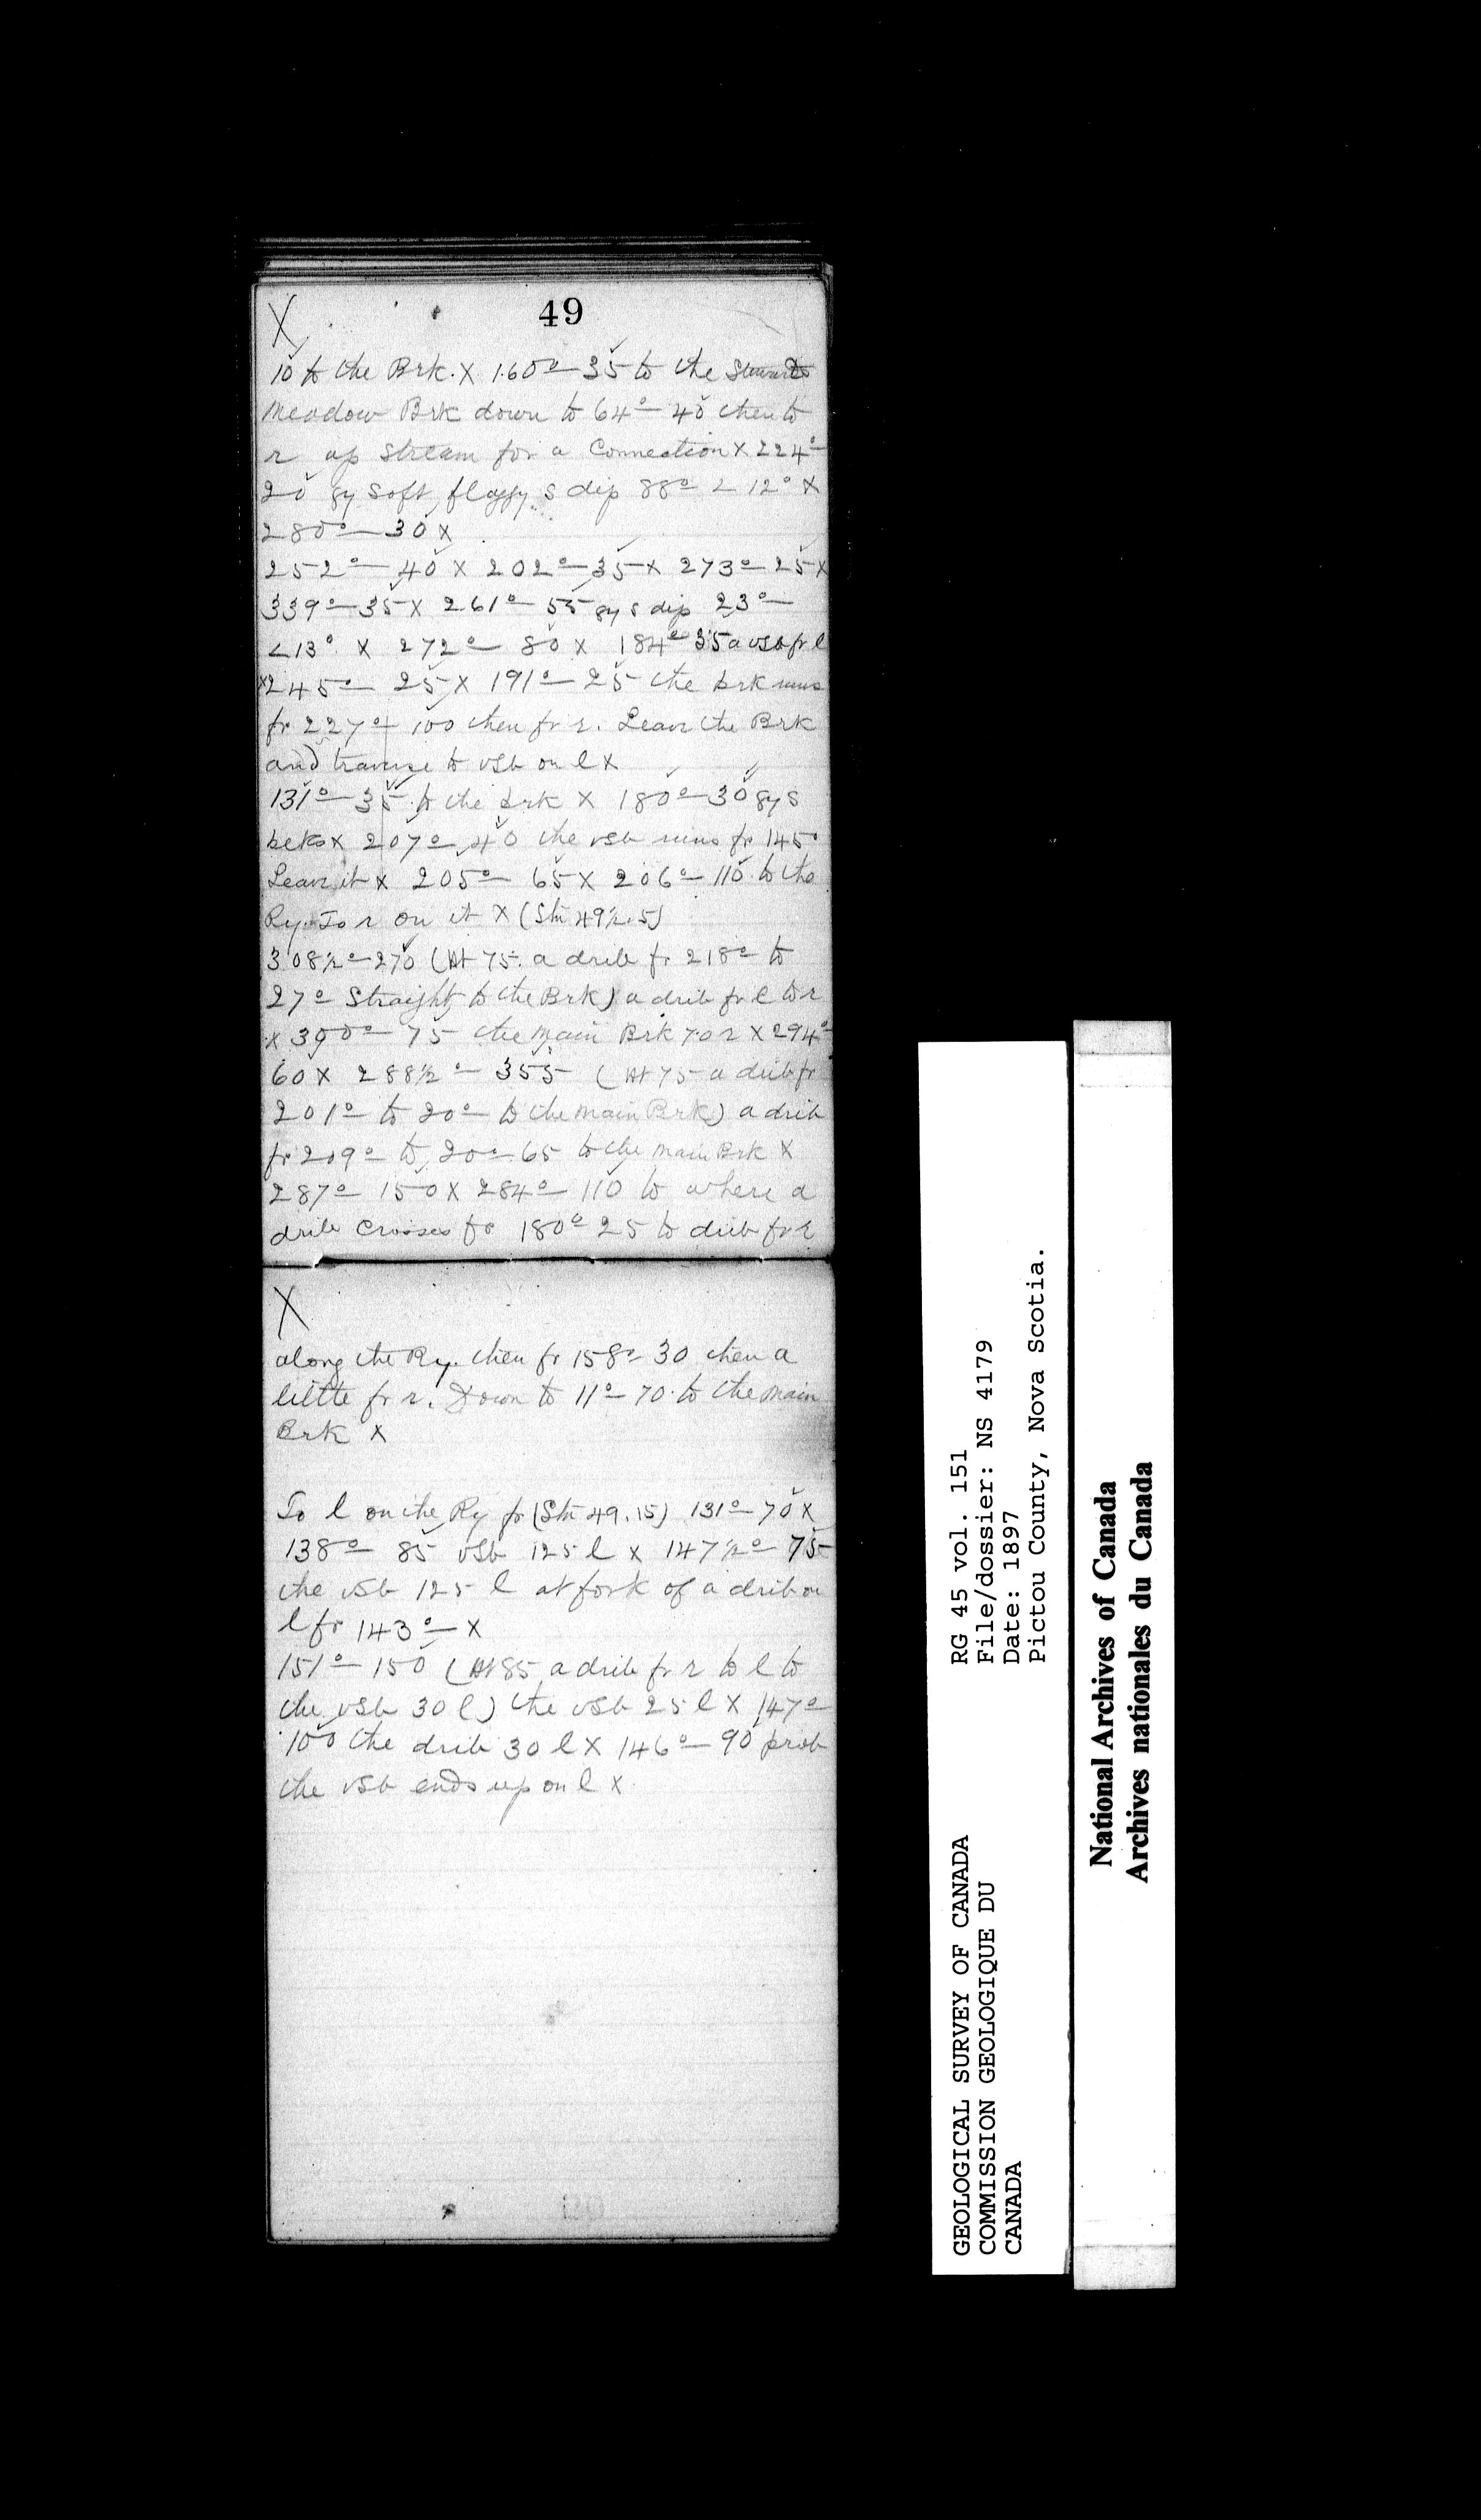 49
X
10 to the Brk. X 160°— 35 to the
Meadow Brk down to 64°— 40 then to
r up stream for a Connection X 224°—
20 gy soft, flaggy s dip 88° < 12° X
280°— 30 X
252°— 40 X 202°— 35 X 273°— 25 X
339°— 35 X 261°— 55 gy s dip 23°—
<13° X 272°— 80 X 184°— 35 a vsb fr l
X 245°— 25 X 191°— 25 the brk runs
fr 227°— 100 then fr r. Leave the Brk
and traverse to vsb on l X
131°— 35 to the brk X 180°— 30 gy s
X 207°— 40 the vsb runs fr 145°
Leave it X 205°— 65 X 206°— 110 to the
Ry. To r on it X (Stn 49½.5)
308½°— 270 (At 75 a drib fr 218° to
27° Straight to the Brk) a drib fr l to r
X 300°— 75 the main Brk 70 r X 294°—
60 X 288½°— 355 (At 75 a drib fr
201° to 20° to the main Brk) a drib
fr 209° to 20° 65 to the main Brk X
287°— 150 X 284°— 110 to where a
drib crosses fr 180° 25 to drib fr r
X
along the Ry. then fr 158°— 30 then a
little fr r. Down to 11°— 70 to the main
Brk X
To l on the Ry fr (Stn 49.15) 131°— 70 X
138°— 85 vsb 125 l X 147½°— 75
the vsb 125 l at fork of a drib on
l fr 143°— X
151°— 150 (At 85 a drib fr r to l to
the vsb 30 l) the vsb 25 l X 147°—
100 the drib 30 l X 146°— 90 prob
the vsb ends up on l X
GEOLOGICAL SURVEY OF CANADA
COMMISSION GEOLOGIQUE DU
CANADA
RG 45 vol. 151
File/dossier: NS 4179
Date: 1897
Pictou County, Nova Scotia.
National Archives of Canada
Archives nationales du Canada